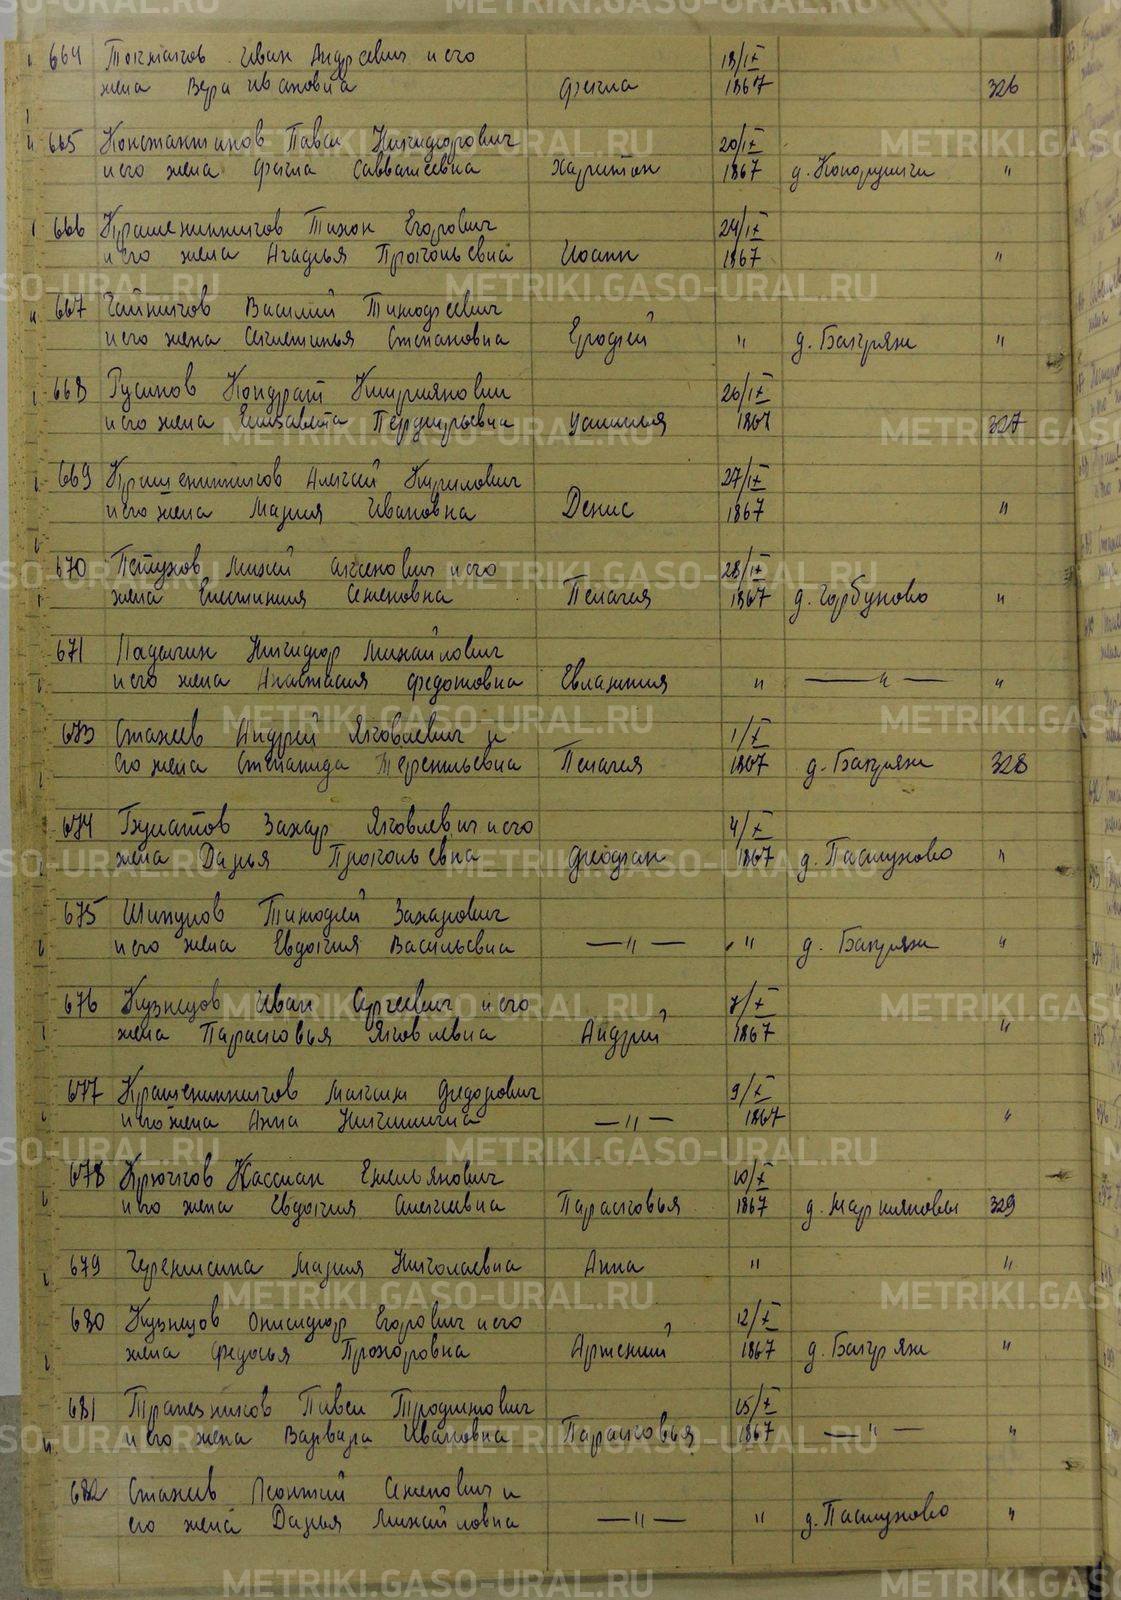 664 Токмаков Иван Андреевич и его 18/IX
жена Вера Ивановна Фекла 1867 326
665 Константинов Павел Никифорович 20/IX
и его жена Фекла Савватеевна Харитон 1867 д. "
666 Крашенинников Тихон Егорович 24/IX
и его жена Агафья Прокопьевна Иоанн 1867 "
667 Чайников Василий Тимофеевич
и его жена Степановна Ерофей " д. Бакряжи "
668 Русинов Кондрат 26/IX
и его жена Елизавета Устинья 1867 327
669 Крашенинников Алексей Кирилович 27/IX
и его жена Мария Ивановна Денис 1867 "
670 Петухов Михей и его 28/IX
жена Семеновна Пелагея 1867 д. Горбуново "
671 Никифор Михайлович
и его жена Анастасия Федотовна Евлампия " —"— "
673 Стахеев Андрей Яковлевич и 1/X
его жена Степанида Терентьевна Пелагея 1867 д. Бакряжи 328
674 Булатов Захар Яковлевич и его 4/X
жена Дарья Прокопьевна 1867 д. Пастухово "
675 Шипулов Тимофей Захарович
и его жена Евдокия Васильевна —"— " д. Бакряжи "
676 Кузнецов Иван Сергеевич и его 7/X
жена Парасковья Яковлевна Андрей 1867 "
677 Крашенинников Максим Федорович 9/X
и его жена Анна Никитична —"— 1867 "
678 Крючков Кассиан Емельянович 10/X
и его жена Евдокия Алексеевна Парасковья 1867 д. 329
679 Мария Николаевна Анна " "
680 Кузнецов Онисифор Егорович и его 12/X
жена Федосья Прохоровна 1867 д. Бакряжи "
681 Трапезников Павел Трофимович 15/X
и его жена Варвара Ивановна Парасковья 1867 —"— "
682 Стахеев Леонтий Семенович и
его жена Дарья Михайловна —"— " д. Пастухово "
METRIKI.GASO-URAL.RU